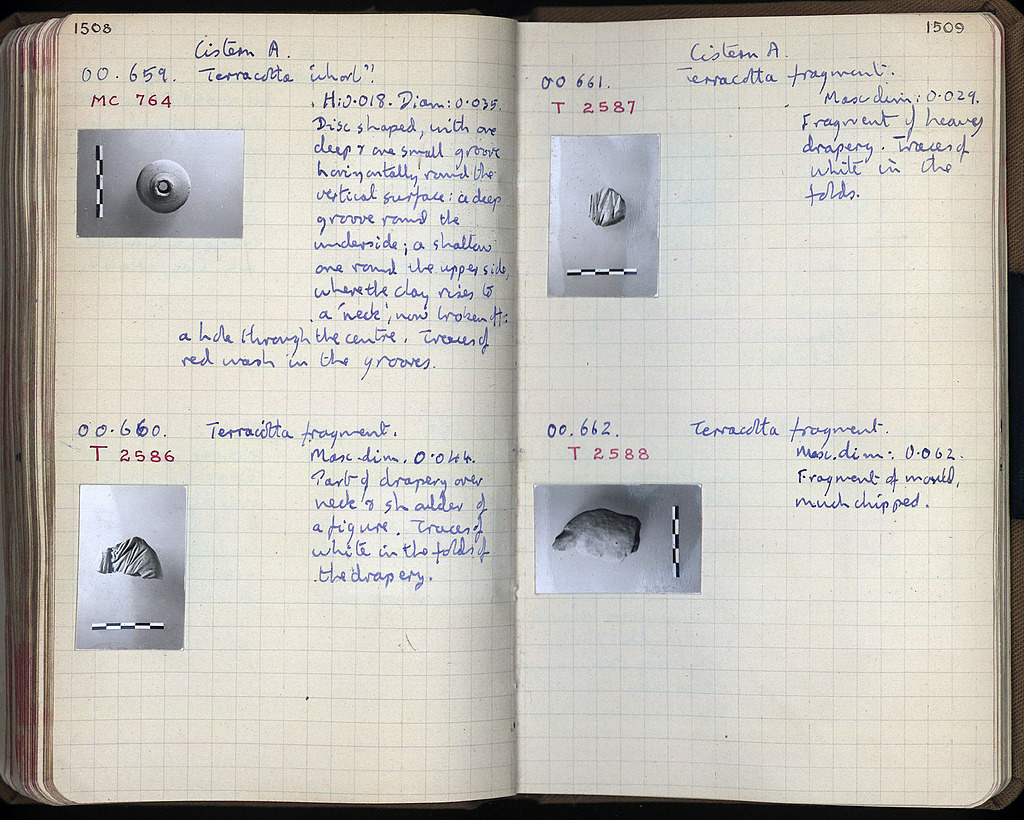 1508
Cistern A.
OO.659. Terracotta "whorl".
MC 764
H: 0.018. Diam: 0.035.
Disc shaped, with one
deep & one small groove
horizontally round the
vertical surface: a deep
groove round the
underside; a shallow
one round the upper side,
where the clay rises to
a 'neck', now broken off:
a hole through the centre. Traces of
red wash in the grooves.
OO.660. Terracotta fragment.
T 2586
Max. dim. 0.044.
Part of drapery over
neck & shoulder of
a figure. Traces of
white in the folds of
the drapery.
1509
Cistern A.
OO 661. Terracotta fragment.
T 2587
Max dim: 0.029.
Fragment of heavy
drapery. Traces of
white in the
folds.
OO.662. Terracotta fragment.
T 2588
Max. dim: 0.062.
Fragment of mould,
much chipped.